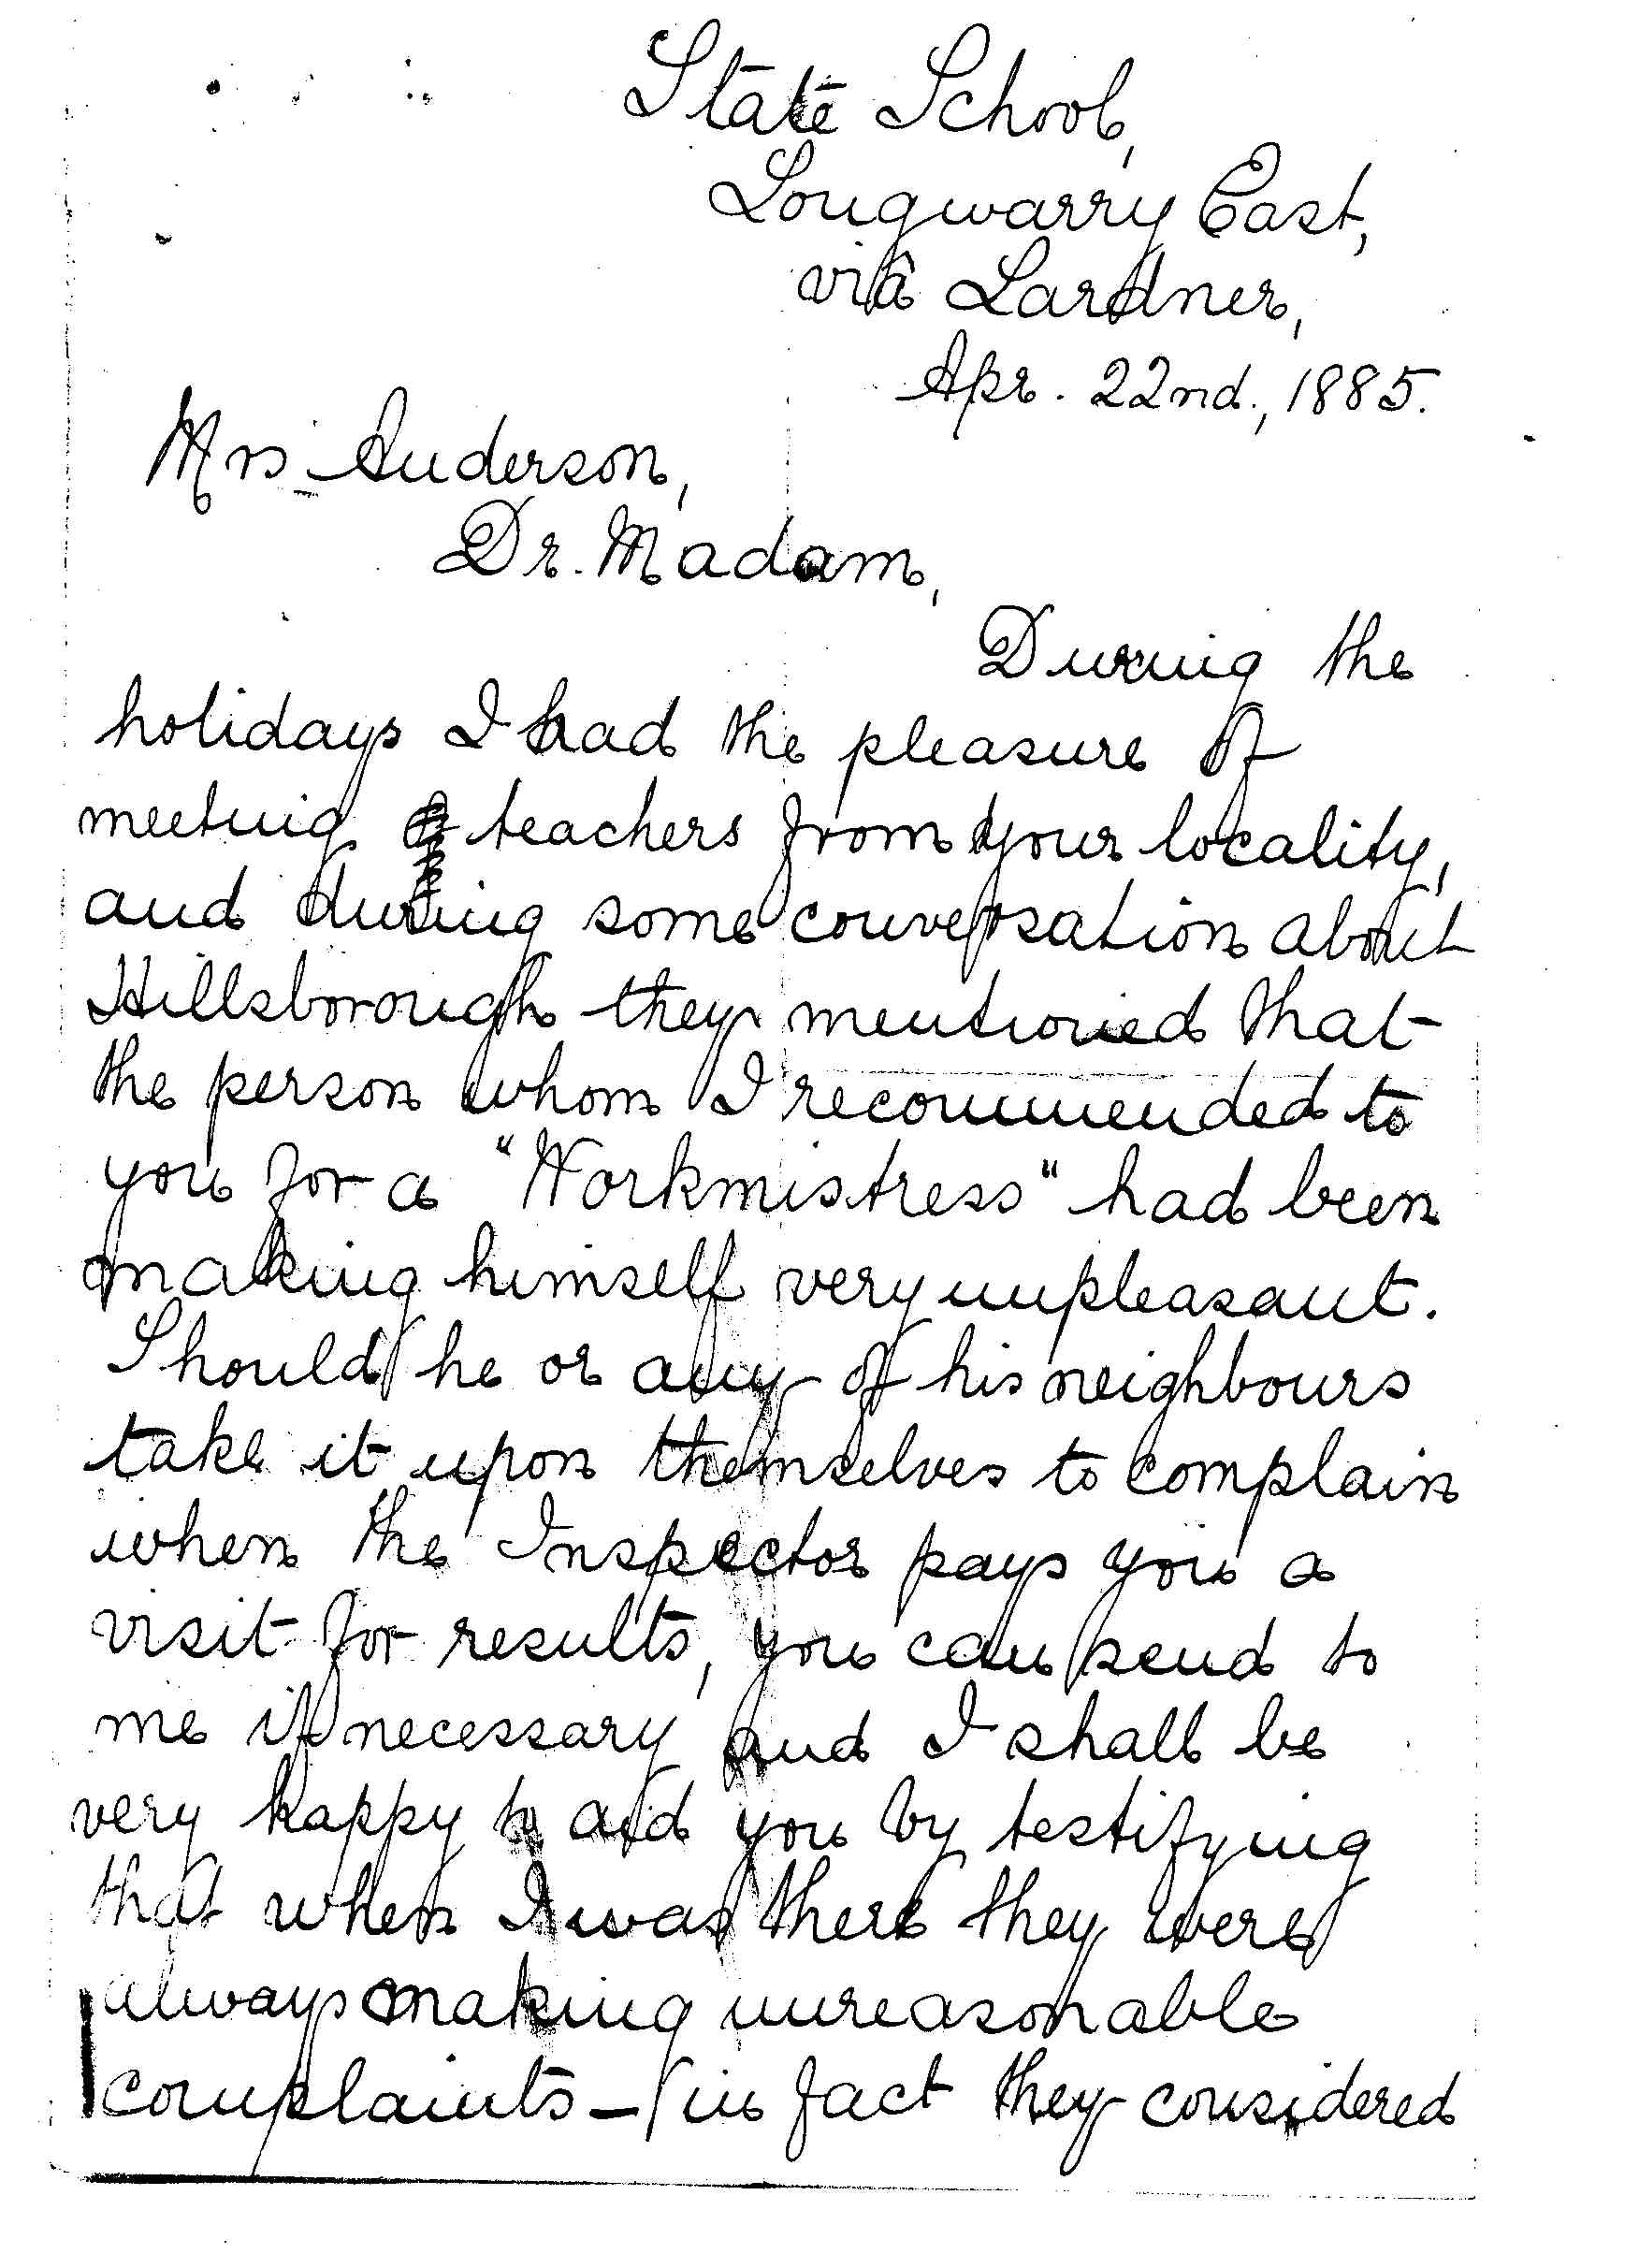 State School,
Longwarry East,
viâ Lardner,
Apr. 22nd., 1885.
Mrs Anderson,
Dr. Madam,
During the
holidays I had the pleasure of
meeting teachers from your locality,
and during some conversation about
Hillsborough they mentioned that
the person whom I recommended to
you for a "Workmistress" had been
making himself very unpleasant.
Should he or any of his neighbours
take it upon themselves to complain
when the Inspector pays you a
visit for results, you can send to
me if necessary and I shall be
very happy to aid you by testifying
that when I was there they were
always making unreasonable
complaints — in fact they considered